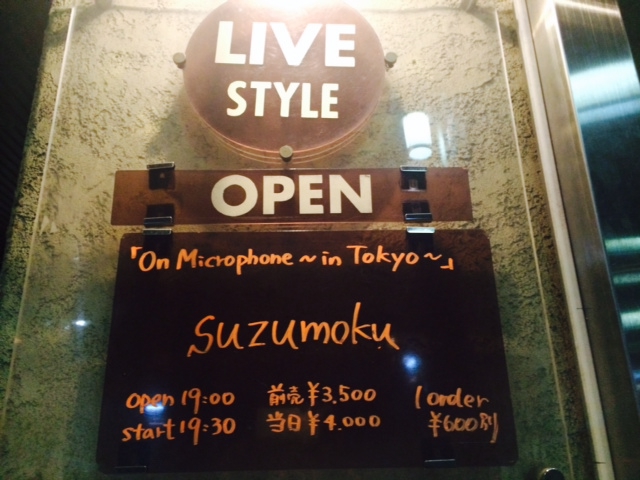 LIVE
STYLE
OPEN
「On Microphone～in Tokyo～」
suzumoku
open 19:00 前売¥3,500 (order
start 19:30 当日¥4,000 ¥600別)